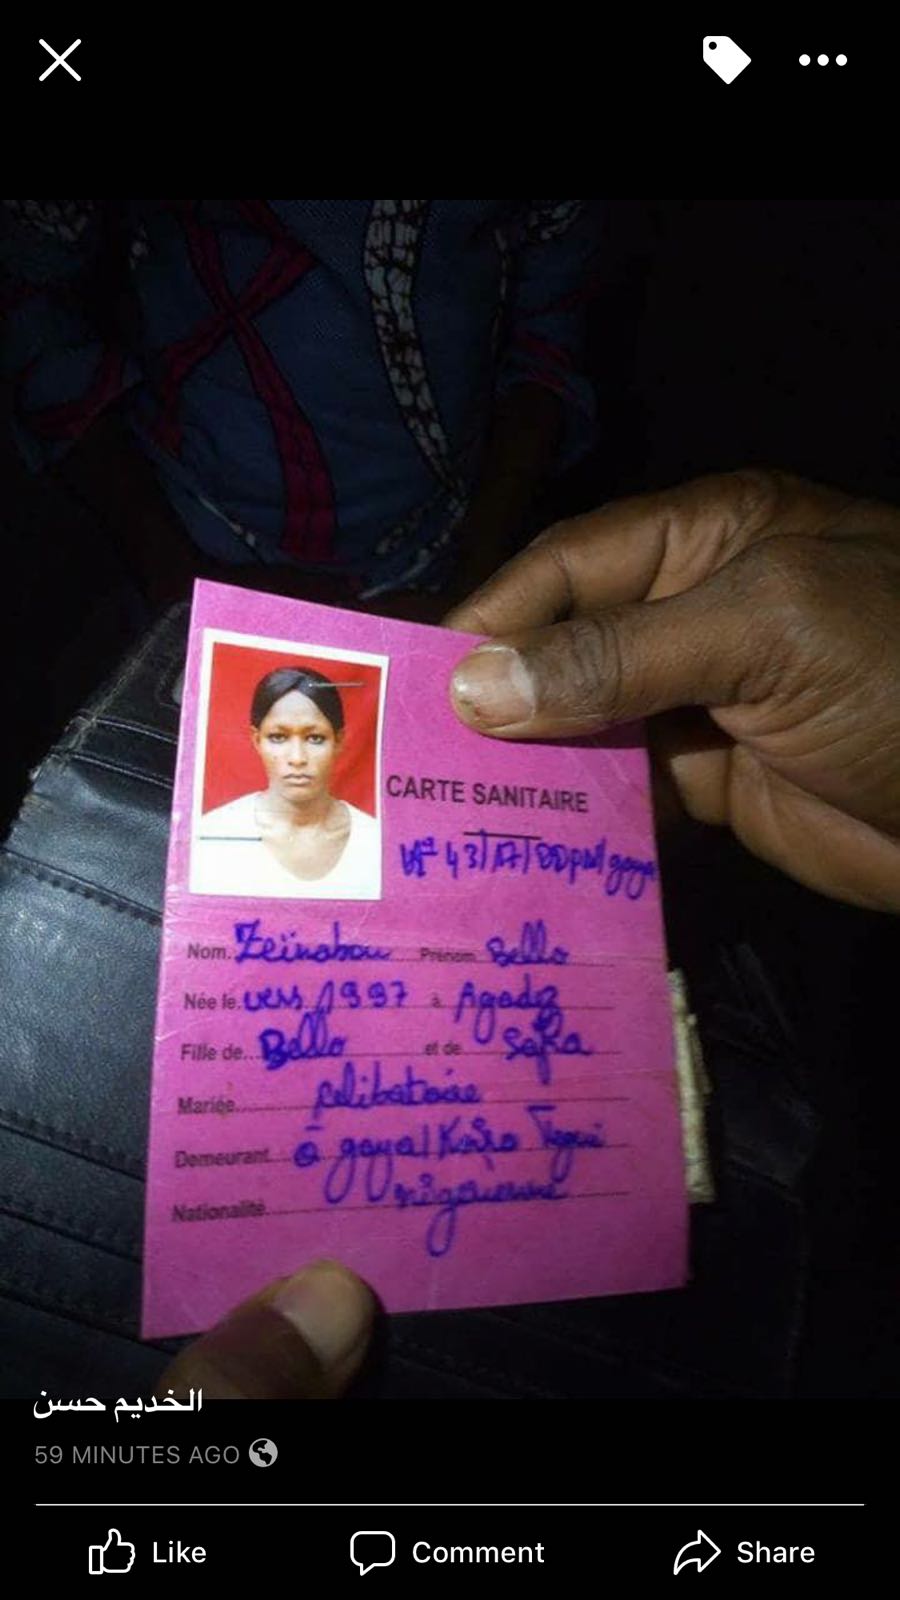 CARTE SANITAIRE
N° 43/17/DDPM/gaya
Nom. Zeïnabou Prénom Bello
Née le. vers 1997 à Agadez
Fille de. Bello et de Safia
Mariée célibataire
Demeurant à gaya/ Tegui
Nationalité. nigérienne
الخديم حسن
59 MINUTES AGO
Like Comment Share